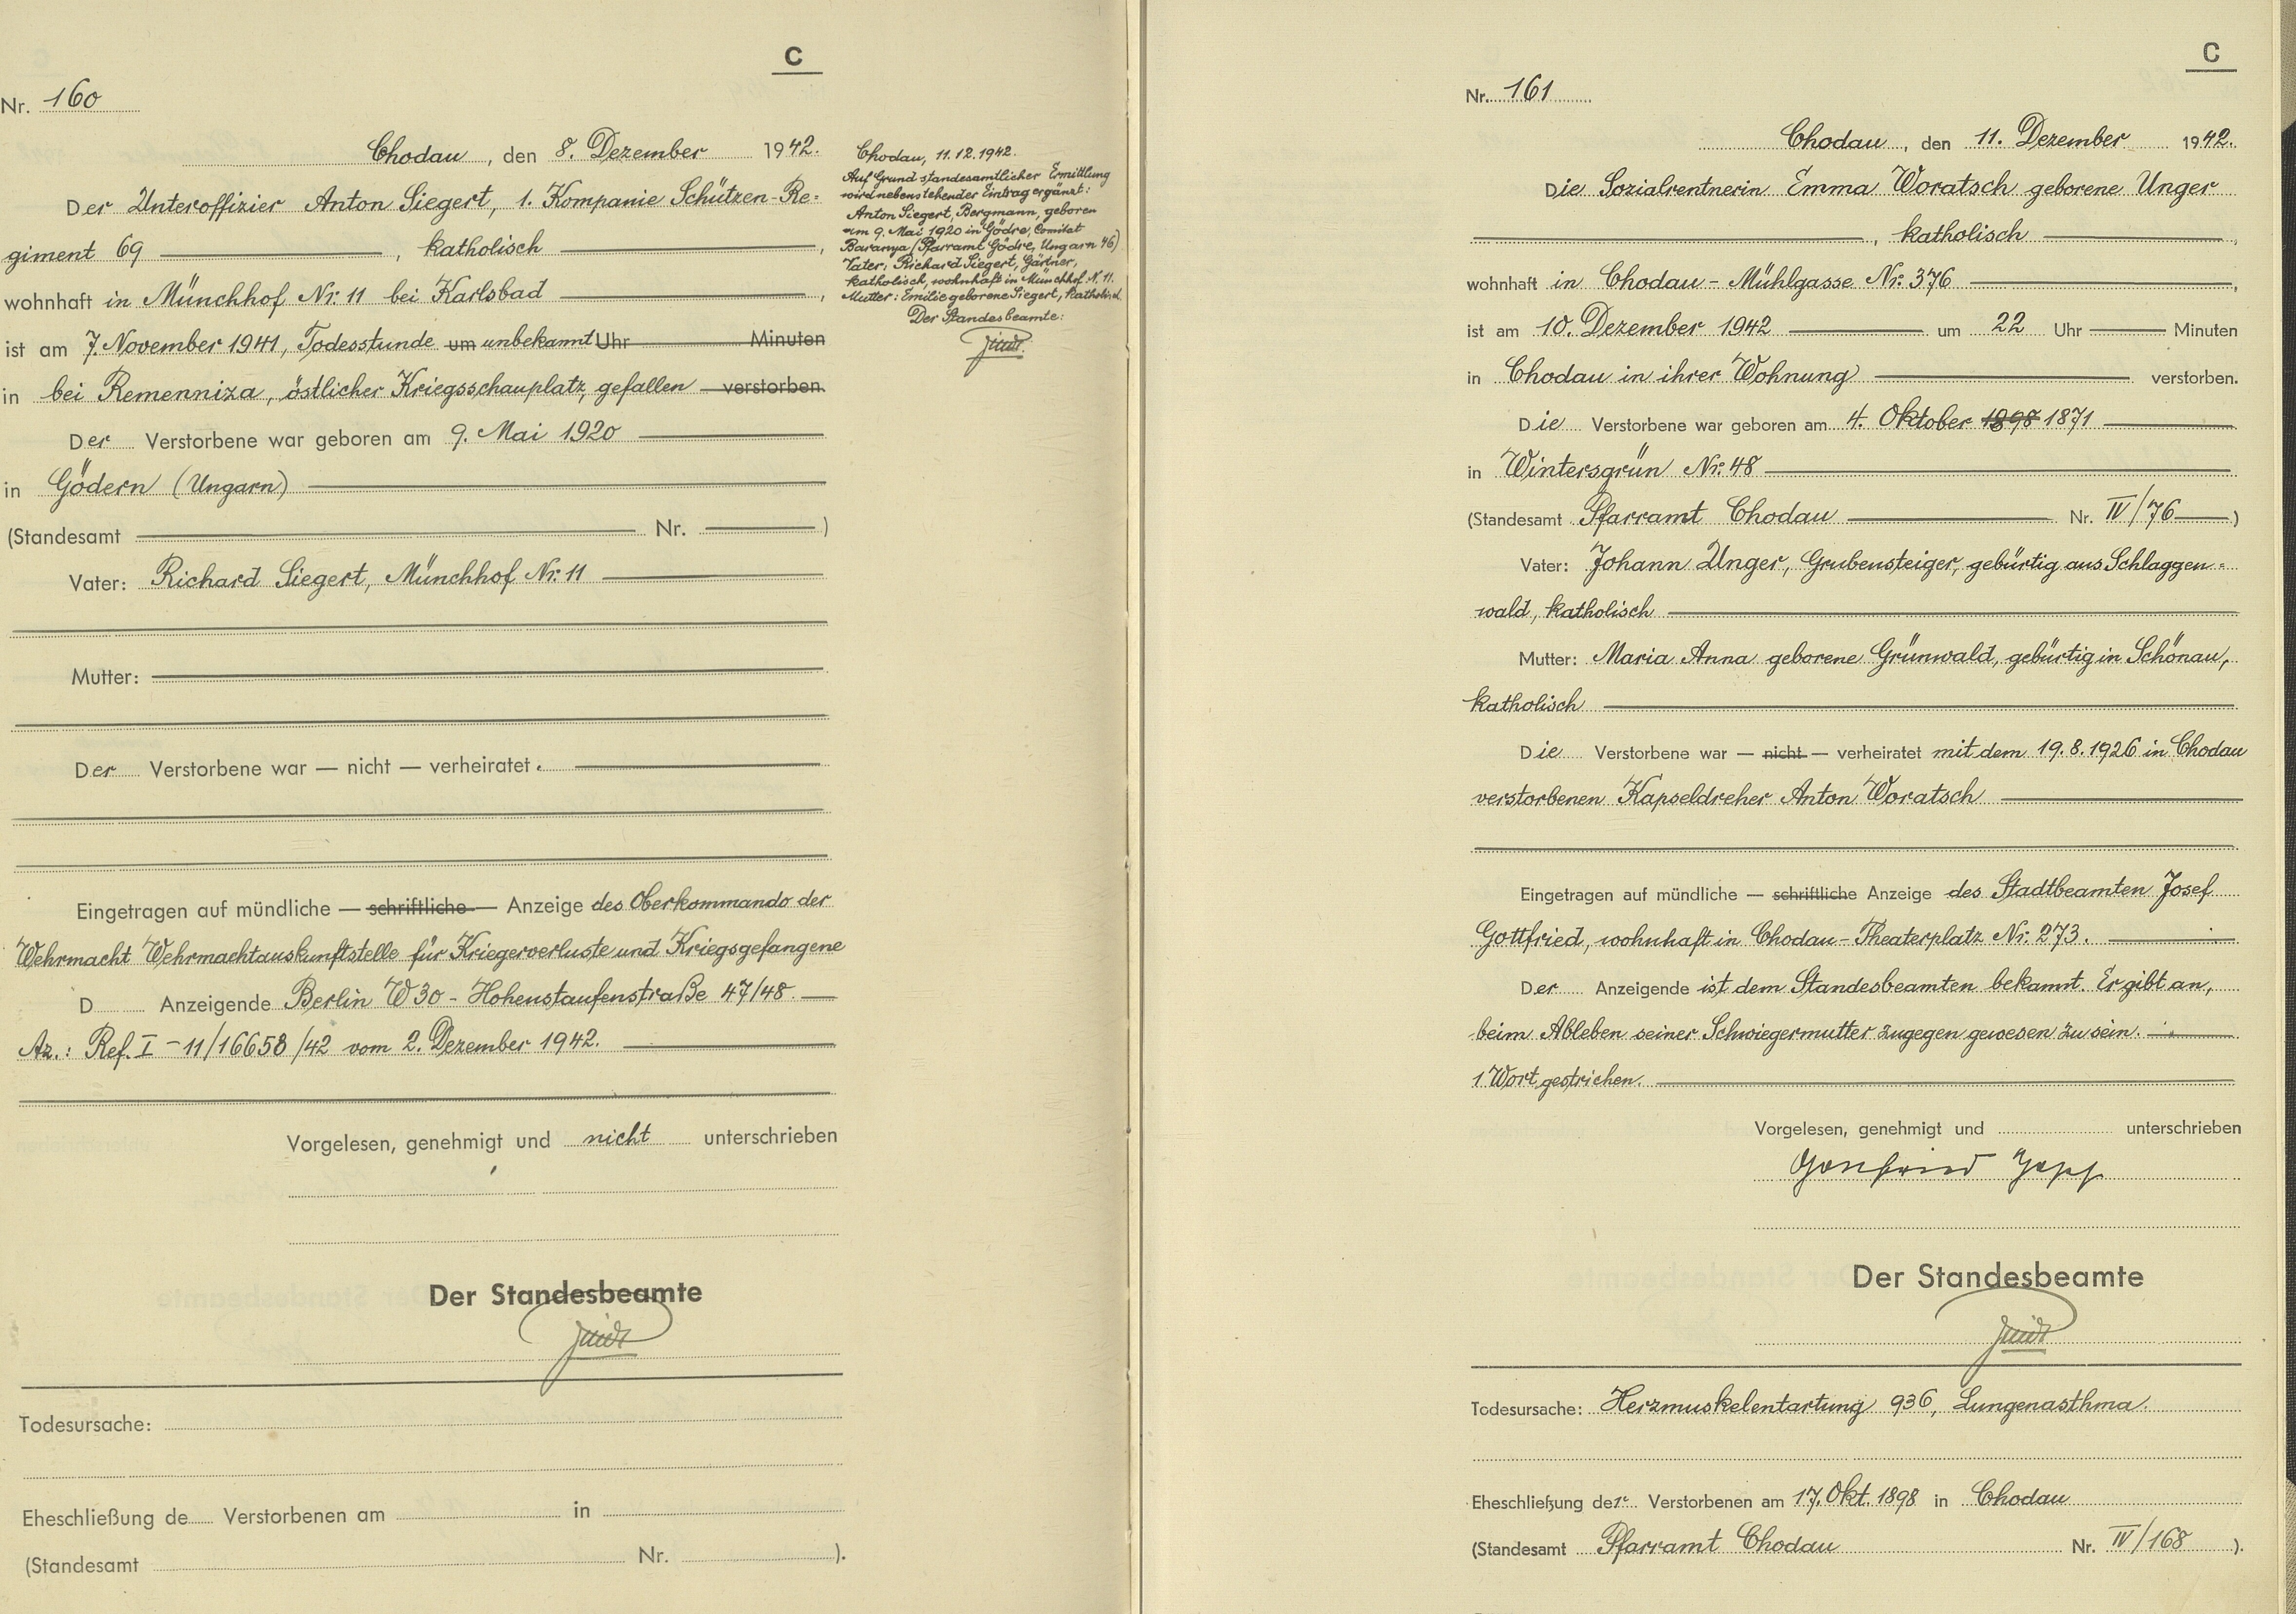 C
Nr. 160
Chodau, den 8. Dezember 1942.
Der Unteroffizier Anton Siegert, 1. Kompanie Schützen-Re=
giment 69, katholisch,
wohnhaft in Münchhof Nr. 11 bei Karlsbad,
ist am 7. November 1941, Todesstunde um unbekannt Uhr Minuten
in bei Remenniza, östlicher Kriegsschauplatz, gefallen verstorben.
Der Verstorbene war geboren am 9. Mai 1920
in Gödern (Ungarn)
(Standesamt Nr. )
Vater: Richard Siegert, Münchhof Nr. 11
Mutter:
Der Verstorbene war — nicht — verheiratet.
Eingetragen auf mündliche — schriftliche — Anzeige des Oberkommando der
Wehrmacht Wehrmachtauskunftstelle für Kriegerverluste und Kriegsgefangene
D Anzeigende Berlin W 30 - Hohenstaufenstraße 47/48.
Az.: Ref. I - 11/16658/42 vom 2. Dezember 1942.
Vorgelesen, genehmigt und nicht unterschrieben
Der Standesbeamte
Todesursache:
Eheschließung de Verstorbenen am in
(Standesamt Nr. ).
Chodau, 11.12.1942.
Auf Grund standesamtlicher Ermittlung
wird nebenstehender Eintrag ergänzt:
Anton Siegert, Bergmann, geboren
am 9. Mai 1920 in Gödre, Comitat
Baranya (Pfarramt Gödre, Ungarn 46)
Vater: Richard Siegert, Gärtner,
katholisch, wohnhaft in Münchhof N. 11.
Mutter: Emilie geborene Siegert, katholisch.
Der Standesbeamte:
C
Nr. 161
Chodau, den 11. Dezember 1942.
Die Sozialrentnerin Emma Woratsch geborene Unger
, katholisch,
wohnhaft in Chodau - Mühlgasse Nr. 376,
ist am 10. Dezember 1942 um 22 Uhr Minuten
in Chodau in ihrer Wohnung verstorben.
Die Verstorbene war geboren am 4. Oktober 1898 1871
in Wintersgrün Nr. 48
(Standesamt Pfarramt Chodau Nr. IV/76)
Vater: Johann Unger, Grubensteiger, gebürtig aus Schlaggen=
wald, katholisch
Mutter: Maria Anna geborene Grünwald, gebürtig in Schönau,
katholisch
Die Verstorbene war — nicht — verheiratet mit dem 19.8.1926 in Chodau
verstorbenen Kapseldreher Anton Woratsch
Eingetragen auf mündliche — schriftliche Anzeige des Stadtbeamten Josef
Gottfried, wohnhaft in Chodau - Theaterplatz Nr. 273.
Der Anzeigende ist dem Standesbeamten bekannt. Er gibt an,
beim Ableben seiner Schwiegermutter zugegen gewesen zu sein.
1 Wort gestrichen.
Vorgelesen, genehmigt und unterschrieben
Gottfried Josef
Der Standesbeamte
Todesursache: Herzmuskelentartung 936, Lungenasthma.
Eheschließung der Verstorbenen am 17. Okt. 1898 in Chodau
(Standesamt Pfarramt Chodau Nr. IV/168 ).